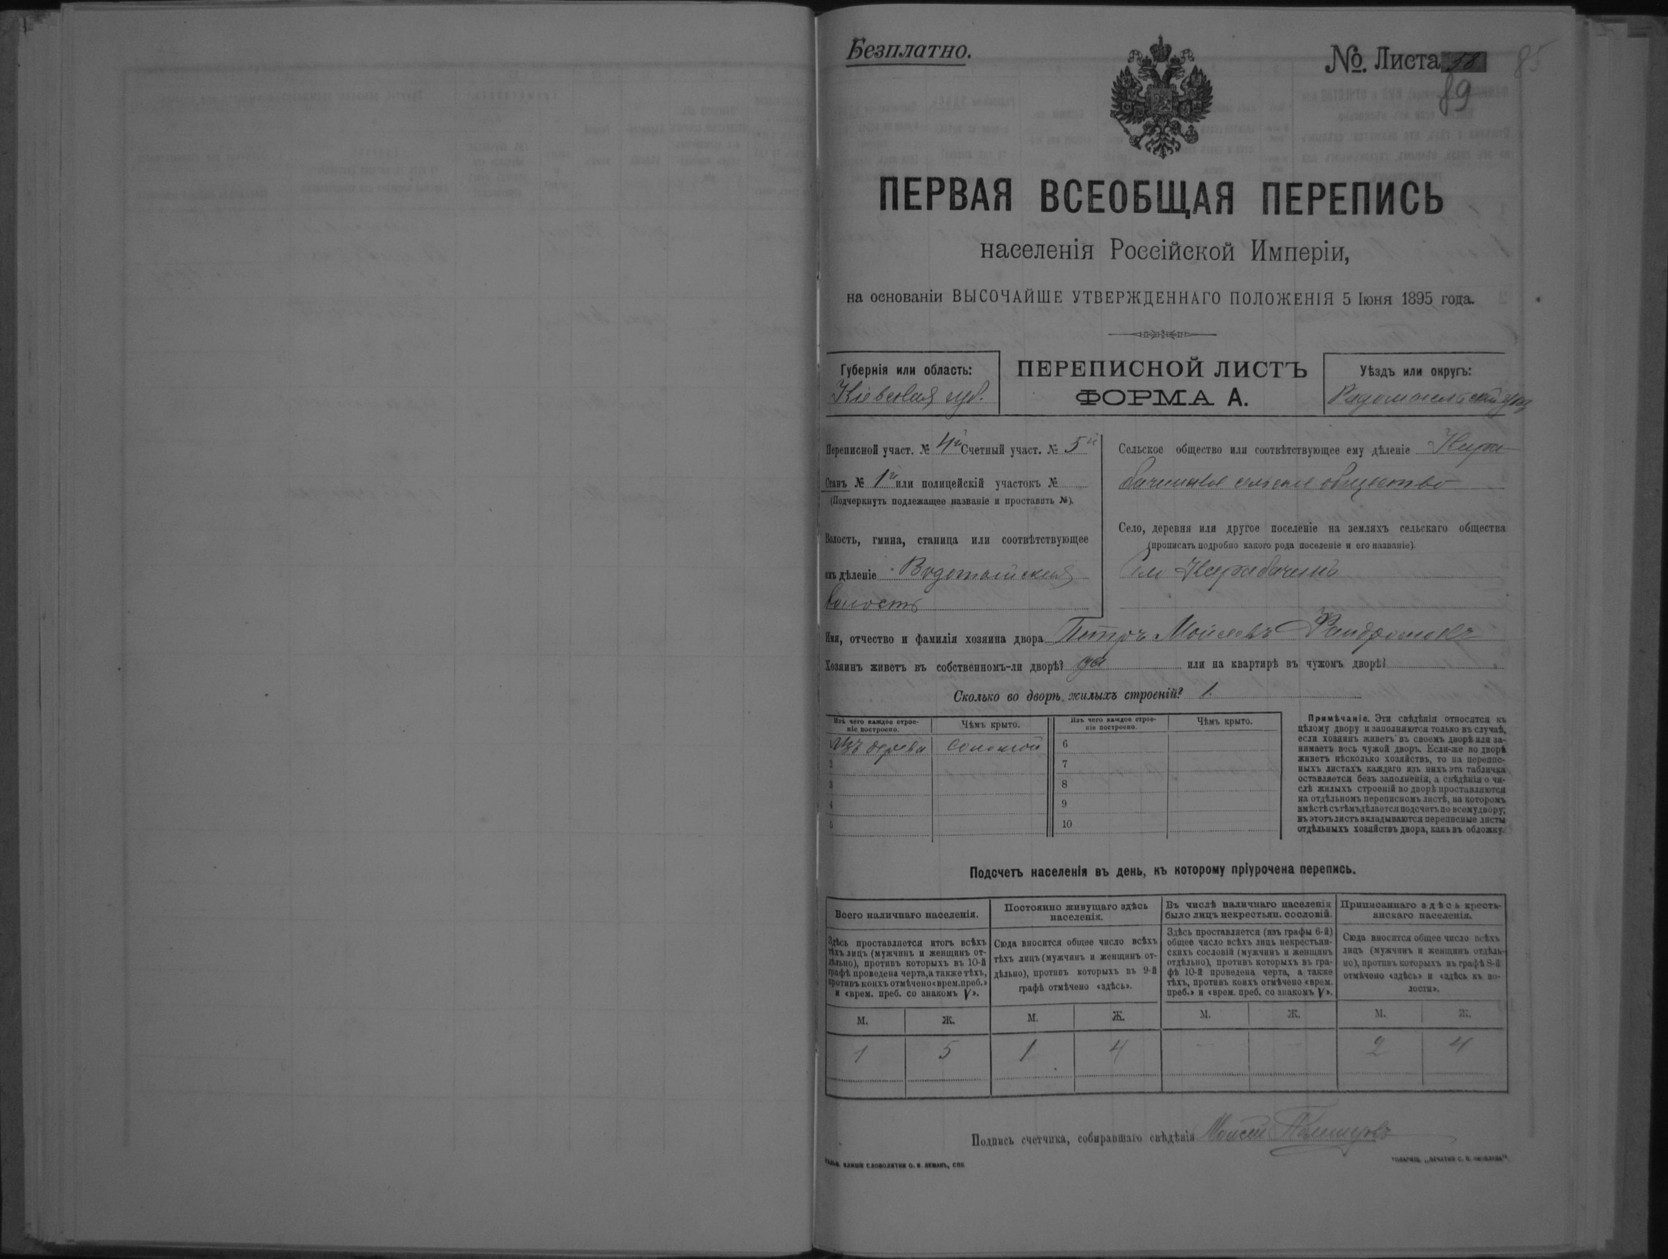 Безплатно.
№. Листа
89
85
ПЕРВАЯ ВСЕОБЩАЯ ПЕРЕПИСЬ
населенія Россійской Имперіи,
на основаніи ВЫСОЧАЙШЕ УТВЕРЖДЕННАГО ПОЛОЖЕНІЯ 5 Іюня 1895 года.
Губернія или область:
Кіевская губ.
ПЕРЕПИСНОЙ ЛИСТЪ
ФОРМА А.
Уѣздъ или округъ:
Радомысльскій уѣз
Переписной участ. № 4й Счетный участ. № 5й
Станъ № 1й или полицейскій участокъ №
(Подчеркнуть подлежащее названіе и проставить №).
Волость, гмина, станица или соотвѣтствующее
имъ дѣленіе Водотыйская
волость
Сельское общество или соотвѣтствующее ему дѣленіе
сельское общество
Село, деревня или другое поселеніе на земляхъ сельскаго общества
(прописать подробно какого рода поселеніе и его названіе).
Имя, отчество и фамилія хозяина двора Петръ Моисеевъ
Хозяинъ живетъ въ собственномъ-ли дворѣ? да или на квартирѣ въ чужомъ дворѣ?
Сколько во дворѣ жилыхъ строеній? 1.
Изъ чего каждое строе-
ніе построено.
Чѣмъ крыто.
Изъ чего каждое строе-
ніе построено.
Чѣмъ крыто.
Изъ дерева соломой
2
3
4
5
6
7
8
9
10
Примѣчаніе. Эти свѣдѣнія относятся къ
цѣлому двору и заполняются только въ случаѣ,
если хозяинъ живетъ въ своемъ дворѣ или за-
нимаетъ весь чужой дворъ. Если-же во дворѣ
живетъ нѣсколько хозяйствъ, то на перепис-
ныхъ листахъ каждаго изъ нихъ эта табличка
оставляется безъ заполненія, а свѣдѣнія о чи-
слѣ жилыхъ строеній во дворѣ проставляются
на отдѣльномъ переписномъ листѣ, на которомъ
вмѣстѣ съ тѣмъ дѣлается подсчетъ по всему двору;
въ этотъ листъ вкладываются переписные листы
отдѣльныхъ хозяйствъ двора, какъ въ обложку.
Подсчетъ населенія въ день, къ которому пріурочена перепись.
Всего наличнаго населенія.
Здѣсь проставляется итогъ всѣхъ
тѣхъ лицъ (мужчинъ и женщинъ от-
дѣльно), противъ которыхъ въ 10-й
графѣ проведена черта, а также тѣхъ,
противъ коихъ отмѣчено «врем. преб.»
и «врем. преб. со знакомъ V».
Постоянно живущаго здѣсь
населенія.
Сюда вносится общее число всѣхъ
тѣхъ лицъ (мужчинъ и женщинъ от-
дѣльно), противъ которыхъ въ 9-й
графѣ отмѣчено «здѣсь».
Въ числѣ наличнаго населенія
было лицъ некрестьян. сословій.
Здѣсь проставляется (изъ графы 6-й)
общее число всѣхъ лицъ некрестьян-
скихъ сословій (мужчинъ и женщинъ
отдѣльно), противъ которыхъ въ гра-
фѣ 10-й проведена черта, а также
тѣхъ, противъ коихъ отмѣчено «врем.
преб.» и «врем. преб. со знакомъ V».
Приписаннаго здѣсь кресть-
янскаго населенія.
Сюда вносится общее число всѣхъ
лицъ (мужчинъ и женщинъ отдѣль-
но), противъ которыхъ въ графѣ 8-й
отмѣчено «здѣсь» и «здѣсь въ во-
лости».
М. Ж. М. Ж. М. Ж. М. Ж.
1 5 1 4 - - 2 4
Подпись счетчика, собиравшаго свѣдѣнія Моисей